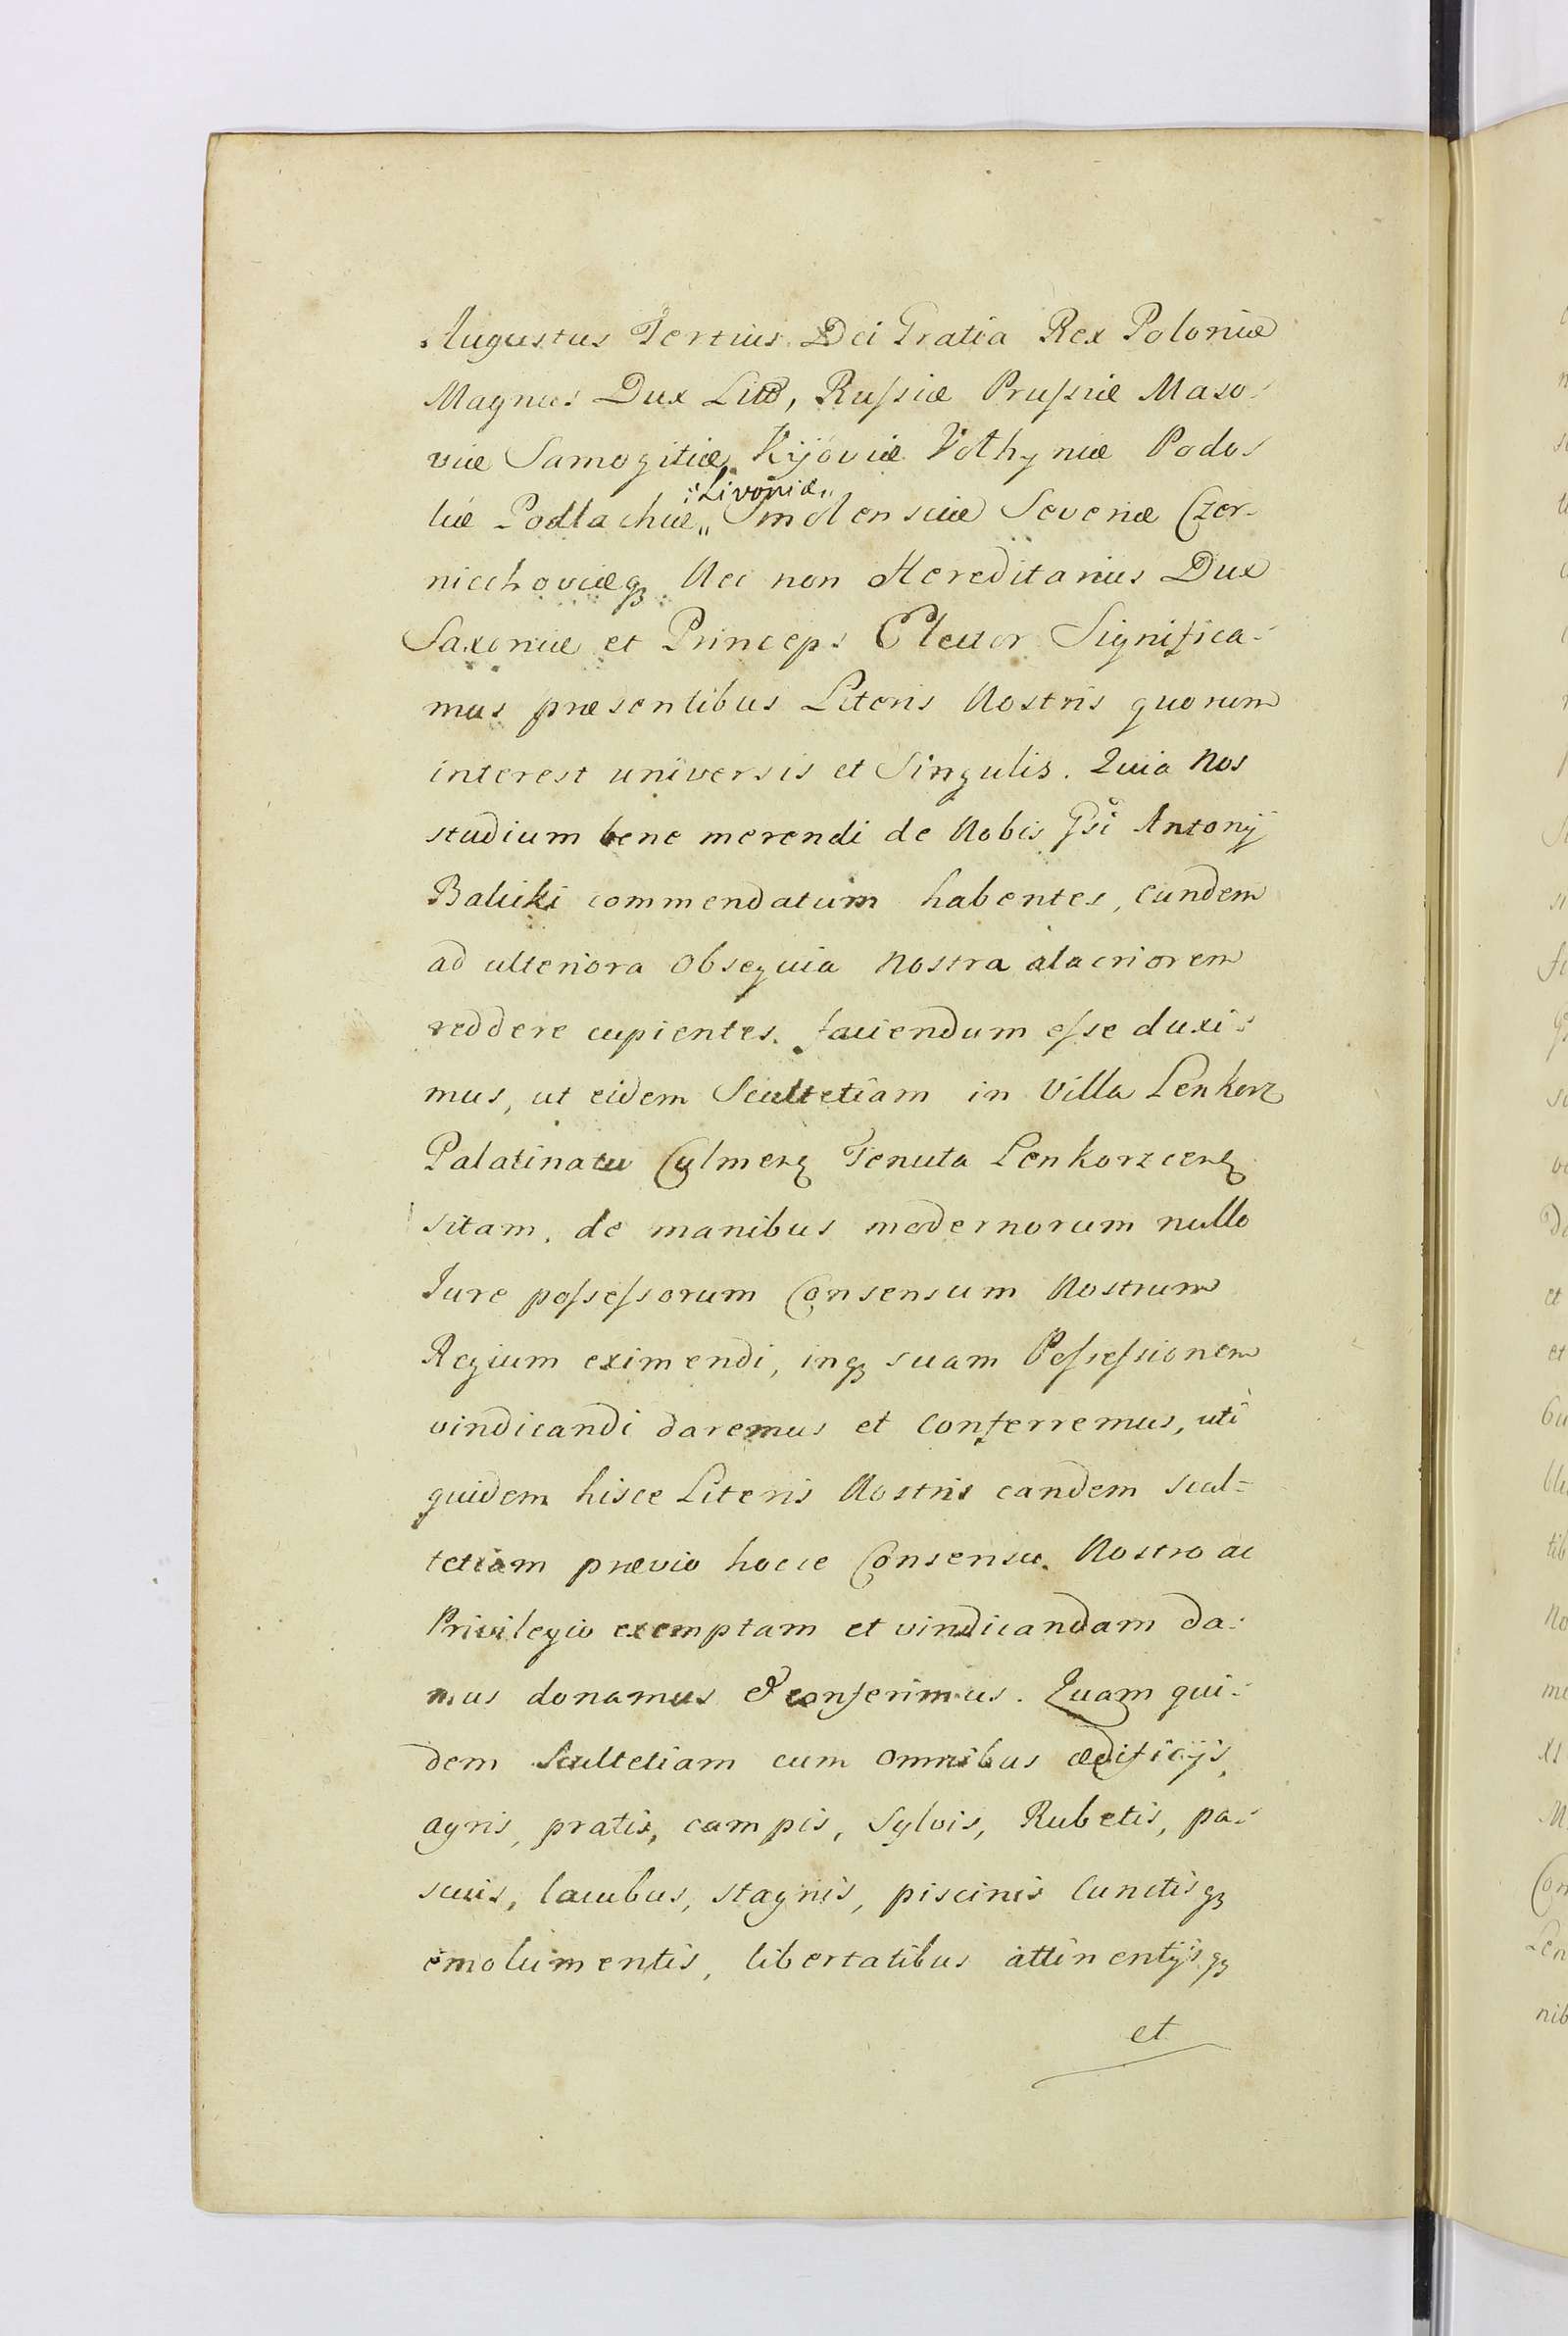 Augustus Tertius Dei Gratia Rex Poloniæ
Magnus Dux Litt, Russiæ Prussiæ Maso-
viæ Samogitiæ Kijoviæ Volhyniæ Podo-
liæ Podlachiæ „ Livoniæ „ Smolensciæ Severiæ Czer-
niechoviæq3 Nec non Hereditarius Dux
Saxoniæ et Princeps Elector Significa-
mus præsentibus Literis Nostris quorum
interest universis et Singulis. Quia Nos
studium bene merendi de Nobis Gsi Antonij
Balicki commendatum habentes, eundem
ad ulteriora obsequia nostra alacriorem
reddere cupientes. faciendum esse duxi-
mus, ut eidem Scultetiam in Villa Lenkorz
Palatinatu Culmenȝ Tenuta Lenkorzcenȝ
sitam, de manibus modernorum nullo
Jure possessorum Consensum Nostrum
Regium eximendi, inq3 suam Possessionem
vindicandi daremus et conferremus, uti
quidem hisce Literis Nostris eandem scul-
tetiam prævio hocce Consensu Nostro ac
Privilegio exemptam et vindicandam da-
mus donamus & conferimus. Quam qui-
dem Scultetiam cum omnibus ædificijs,
agris, pratis, campis, sylvis, Rubetis, pa-
scuis, lacubus, stagnis, piscinis cunctisq3
emolumentis, libertatibus attinentijsq3
et